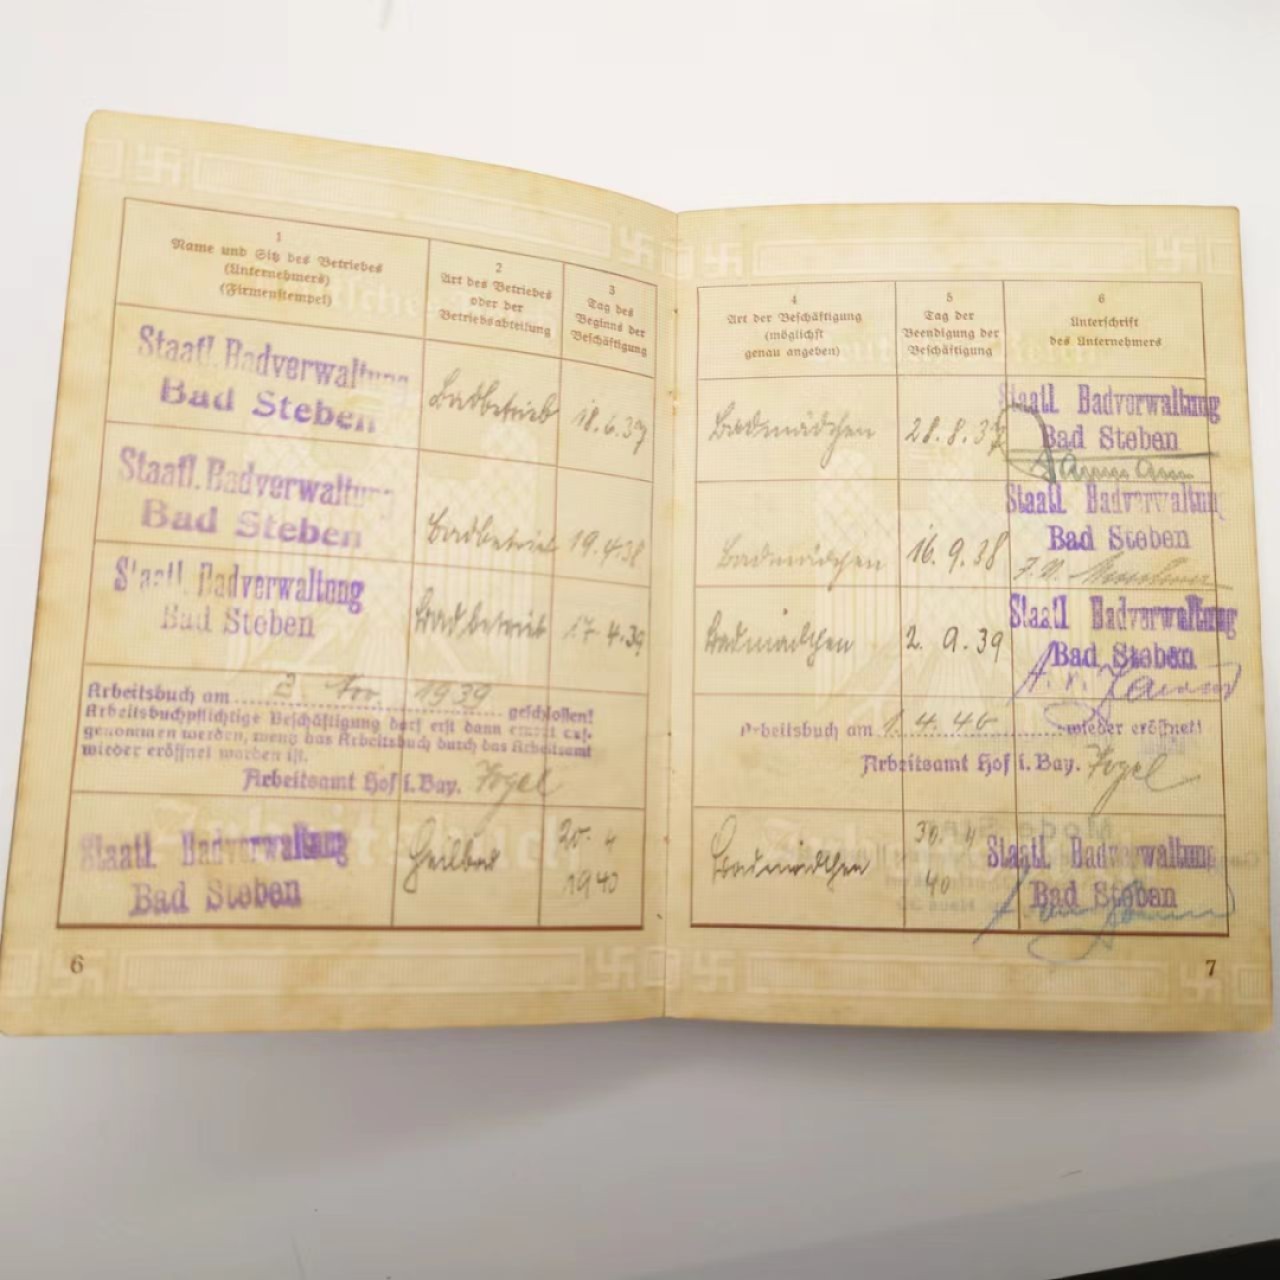 1
Name und Sitz des Betriebes
(Unternehmers)
(Firmenstempel)
2
Art des Betriebes
oder der
Betriebsabteilung
3
Tag des
Beginns der
Beschäftigung
Staatl. Badverwaltung
Bad Steben
Badbetrieb
18.6.37
Staatl. Badverwaltung
Bad Steben
Badbetrieb
19.4.38
Staatl. Badverwaltung
Bad Steben
Badbetrieb
17.4.39
Arbeitsbuch am 2. Nov. 1939 geschlossen!
Arbeitsbuchpflichtige Beschäftigung darf erst dann erneut auf-
genommen werden, wenn das Arbeitsbuch durch das Arbeitsamt
wieder eröffnet worden ist.
Arbeitsamt Hof i. Bay. Vogel
Staatl. Badverwaltung
Bad Steben
Heilbad
20. 4
1940
6
4
Art der Beschäftigung
(möglichst
genau angeben)
5
Tag der
Beendigung der
Beschäftigung
6
Unterschrift
des Unternehmers
Badmädchen
28.8.37
Staatl. Badverwaltung
Bad Steben
Badmädchen
16.9.38
Staatl. Badverwaltung
Bad Steben
Badmädchen
2. 9. 39
Staatl. Badverwaltung
Bad Steben
Arbeitsbuch am 1.4.40 wieder eröffnet!
Arbeitsamt Hof i. Bay. Vogel
Badmädchen
40
Staatl. Badverwaltung
Bad Steben
7